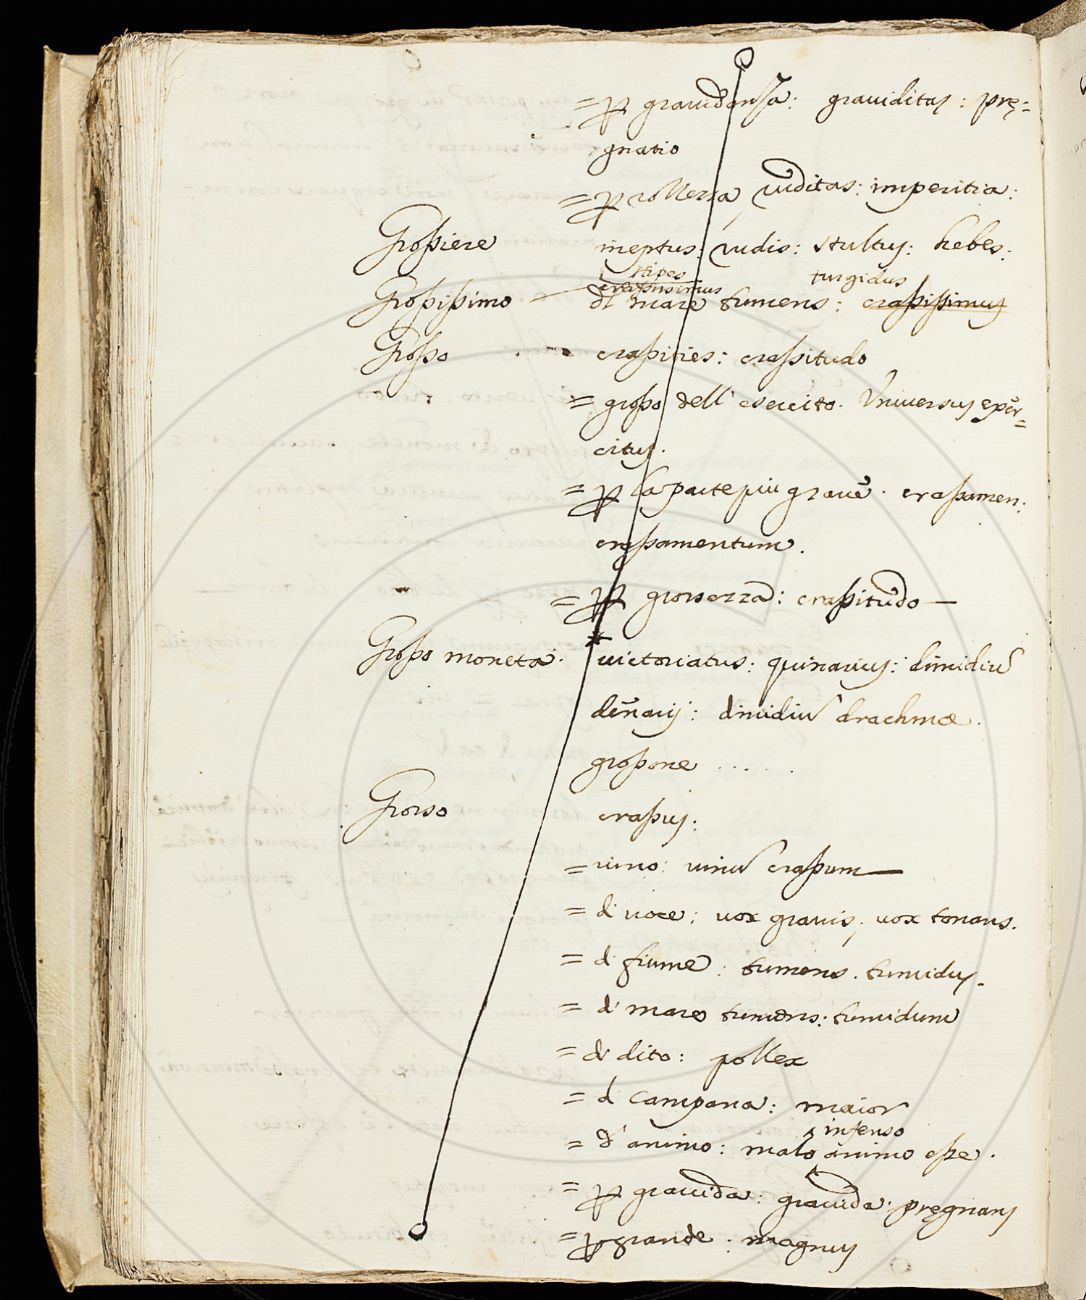 = p gravidanza: graviditas: prę=
gnatio
= p rozzezza ruditas: imperitia:
Großiere ineptus: rudis: stultus: hebes:
stipes turgidus
crassissimus
Großißimo di mare tumens: craßißimus
Großo craßities: craßitudo
= großo dell' esercito. Universus exer=
citus.
= p la parte piu grave. craßamen:
craßamentum.
= p grossezza: craßitudo —
Großo moneta. victoriatus: quinarius: dimidiũ
denarij: dimidiũ drachmæ.
großone . . . . .
Grosso craßus:
= vino: vinũ craßum —
= di voce: vox gravis, vox tonans.
= di fiume: tumens. tumidus.
= di mare tumens: tumidum
= di dito: pollex
= di campana: maior
infenso
= d'animo: malo animo eße.
= p gravida: gravida: pręgnans
= p grande: magnus